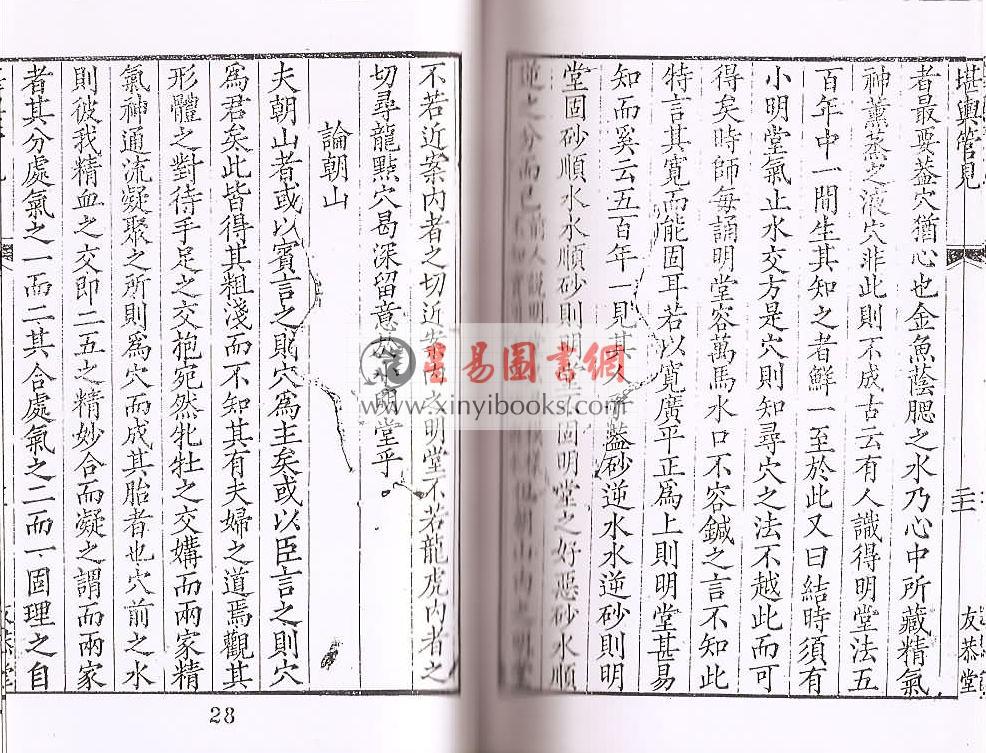 堪輿管見
二十
友恭堂
者最要葢穴猶心也金魚蔭腮之水乃心中所藏精氣
神薰蒸之液穴非此則不成古云有人識得明堂法五
百年中一間生其知之者鮮一至於此又曰結時須有
小明堂氣止水交方是穴則知尋穴之法不越此而可
得矣時師每誦明堂容萬馬水口不容鍼之言不知此
特言其寬而能固耳若以寬廣平正爲上則明堂甚易
知而奚云五百年一見其人乎葢砂逆水水逆砂則明
堂固砂順水水順砂則明堂不固明堂之好惡砂水順
逆之分而已前人說明
朝山內之明堂
不若近案內者之切近案內之明堂不若龍虎內者之
切尋龍點穴曷深留意於小明堂乎
論朝山
夫朝山者或以賓言之則穴爲主矣或以臣言之則穴
爲君矣此皆得其粗淺而不知其有夫婦之道焉觀其
形體之對待手足之交抱宛然牝牡之交媾而兩家精
氣神通流凝聚之所則爲穴而成其胎者也穴前之水
則彼我精血之交即二五之精妙合而凝之謂而兩家
者其分處氣之一而二其合處氣之二而一固理之自
28
星易圖書網
www.xinyibooks.com